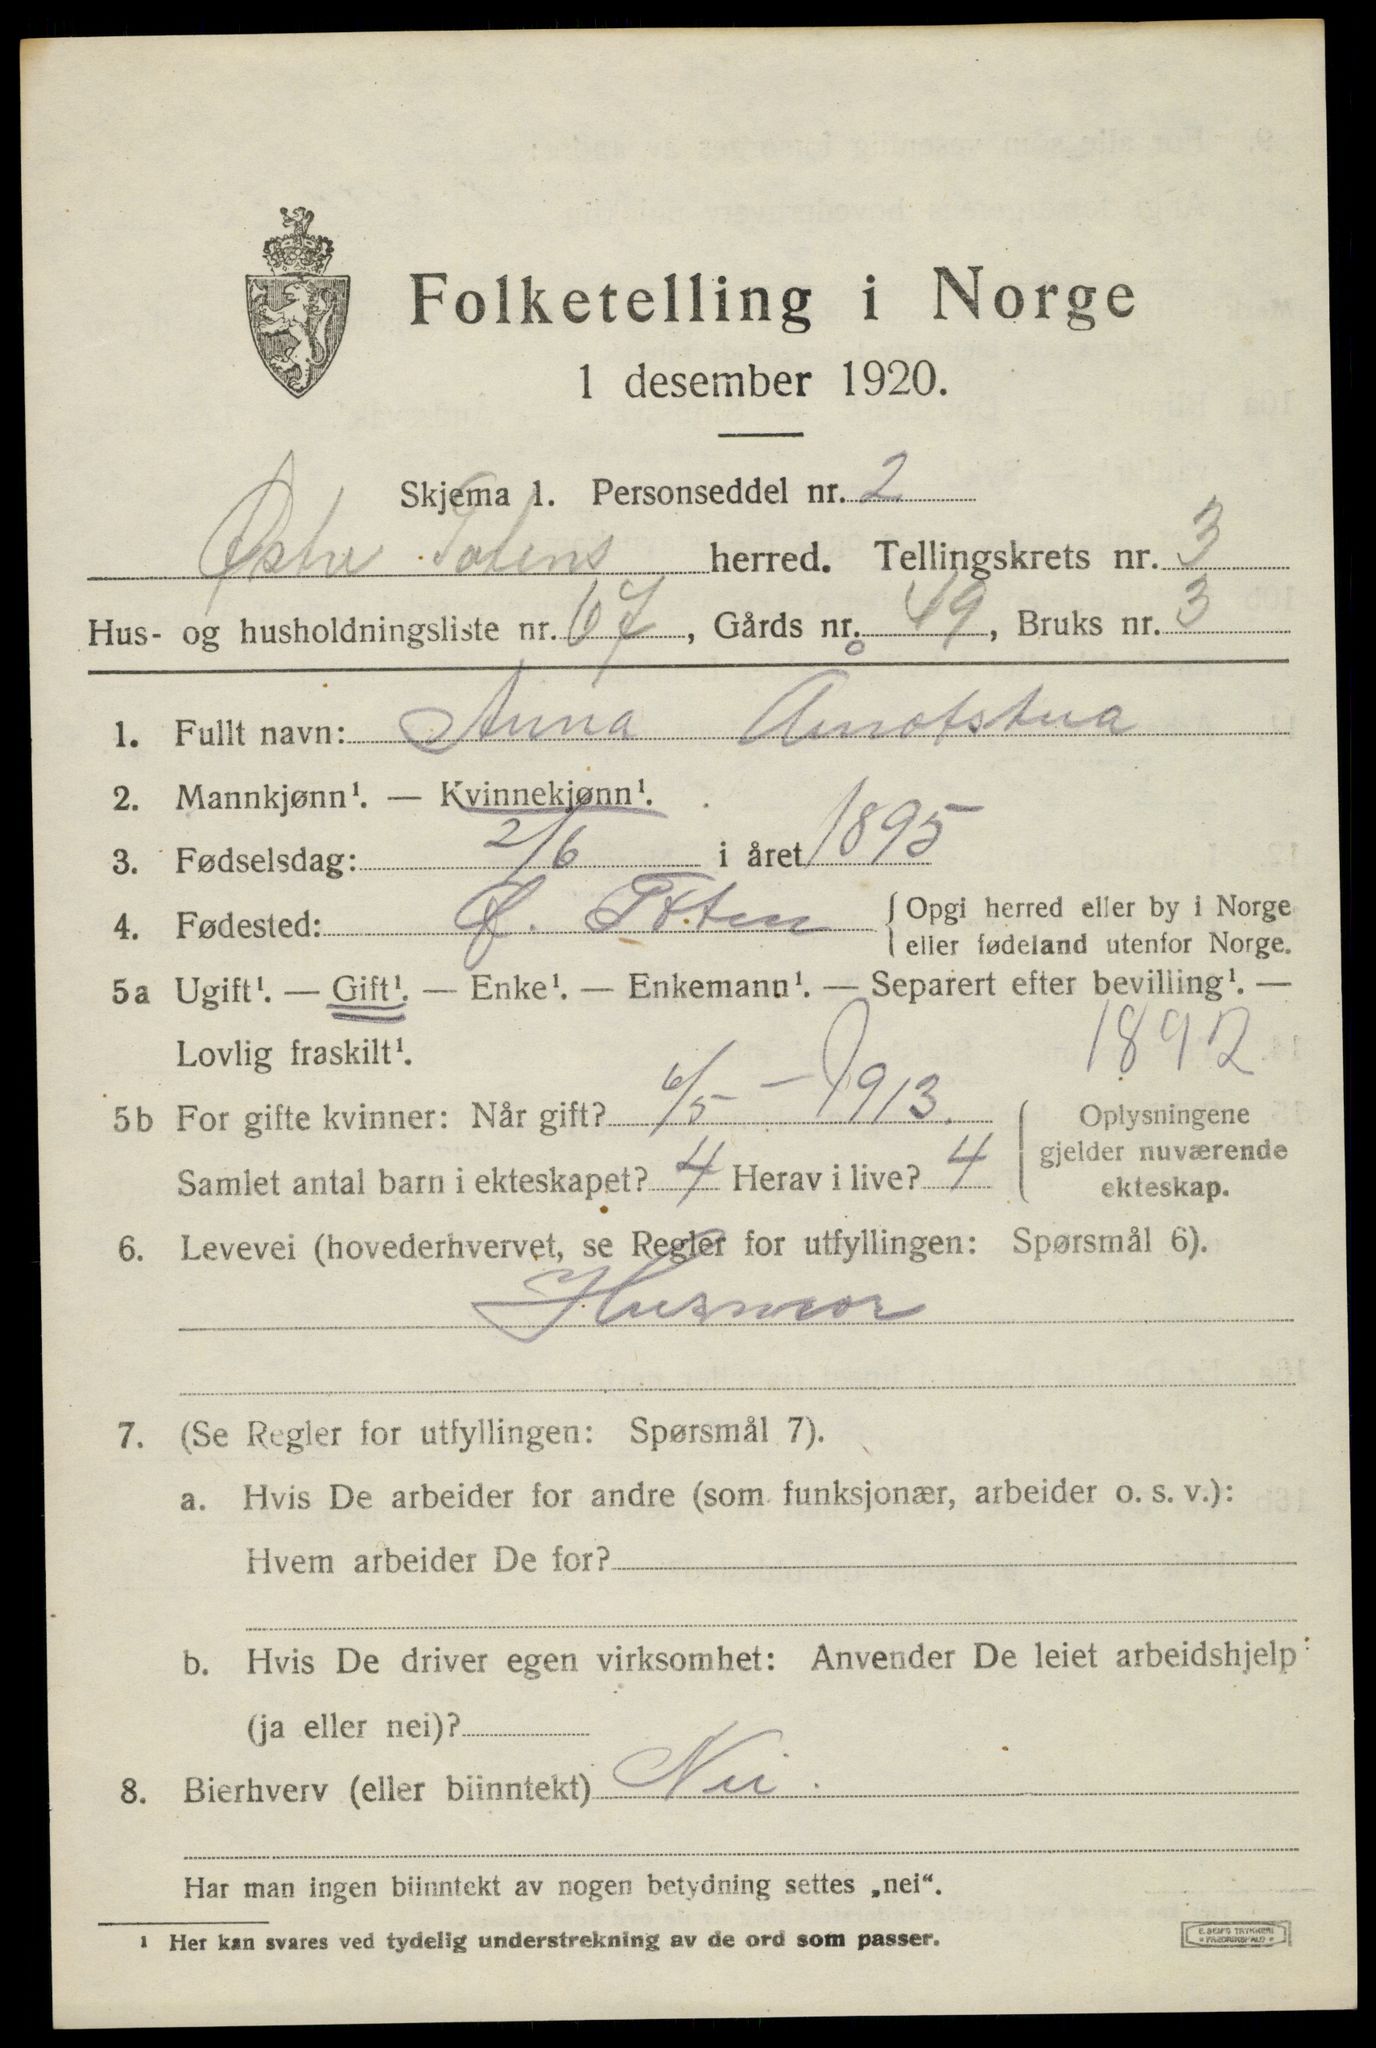 Folketelling i Norge
1 desember 1920.
Skjema 1. Personseddel nr. 2
Østre Totens herred. Tellingskrets nr. 3
Hus- og husholdningsliste nr. 67, Gårds nr. 49, Bruks nr. 3
1. Fullt navn: Anna
2. Mannkjønn¹. — Kvinnekjønn¹.
3. Fødselsdag: 2/6 i året 1895
4. Fødested: Ø. Toten { Opgi herred eller by i Norge
eller fødeland utenfor Norge.
5a Ugift¹. — Gift¹. — Enke¹. — Enkemann¹. — Separert efter bevilling¹. —
Lovlig fraskilt¹. 1892
5b For gifte kvinner: Når gift? 6/5 – 1913. { Oplysningene
gjelder nuværende
Samlet antal barn i ekteskapet? 4 Herav i live? 4 ekteskap.
6. Levevei (hovederhvervet, se Regler for utfyllingen: Spørsmål 6).
Husmor
7. (Se Regler for utfyllingen: Spørsmål 7).
a. Hvis De arbeider for andre (som funksjonær, arbeider o. s. v.):
Hvem arbeider De for?
b. Hvis De driver egen virksomhet: Anvender De leiet arbeidshjelp
(ja eller nei)?
8. Bierhverv (eller biinntekt) Nei.
Har man ingen biinntekt av nogen betydning settes „nei“.
¹ Her kan svares ved tydelig understrekning av de ord som passer.